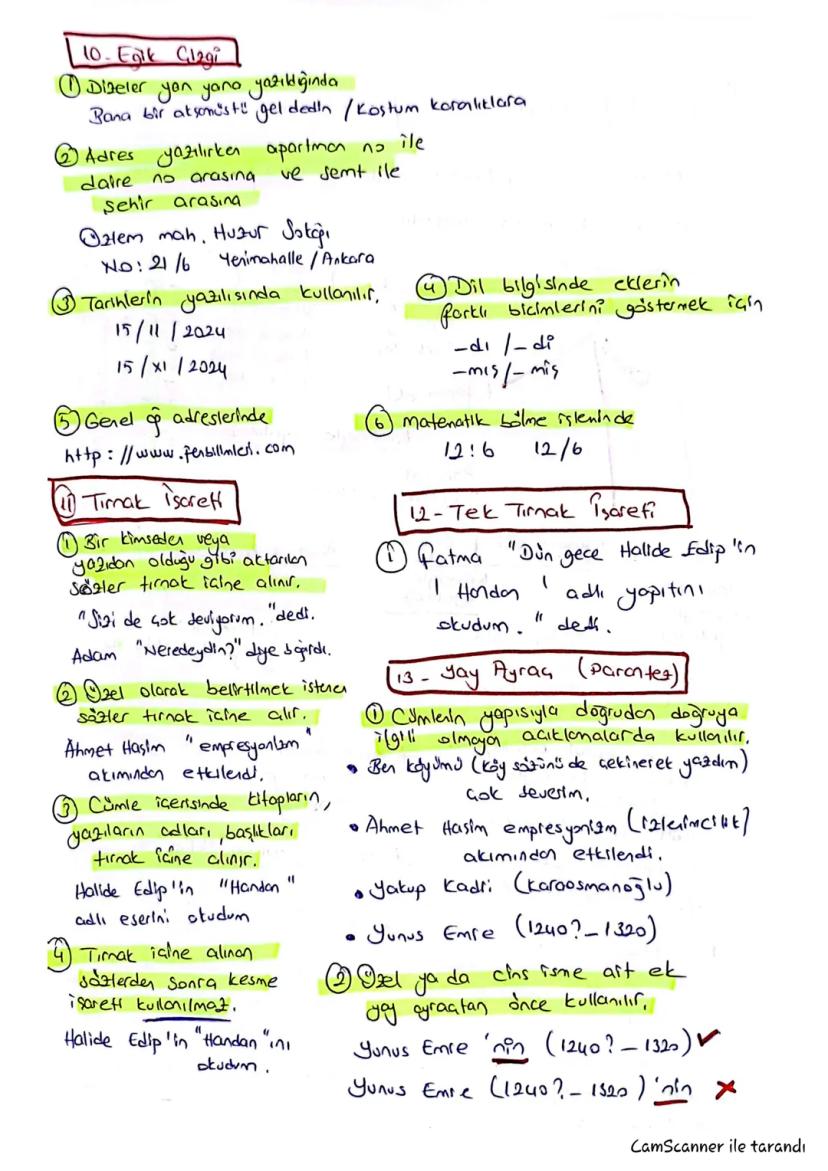 10- Eğik Çizgi
① Dizeler yan yana yazıldığında
Bana bir akşamüstü gel dedin / Koştum karanlıklara
② Adres yazılırken apartman no ile
daire no arasına ve semt ile
şehir arasına
Özlem mah. Huzur Sokağı
No: 21/6 Yenimahalle / Ankara
③ Tarihlerin yazılışında kullanılır.
15 / 11 / 2024
15 / XI / 2024
④ Dil bilgisinde eklerin
farklı biçimlerini göstermek için
-dı / -di
-mış / -miş
⑤ Genel ağ adreslerinde
http://www.fenbilimleri.com
⑥ Matematik bölme işleminde
12:6 12/6
11 Tırnak İşareti
① Bir kimseden veya
yazıdan olduğu gibi aktarılan
sözler tırnak içine alınır.
"Sizi de çok seviyorum." dedi.
Adam "Neredeydin?" diye sordu.
② Özel olarak belirtilmek istenen
sözler tırnak içine alır.
Ahmet Haşim "empresyonizm"
akımından etkilendi.
③ Cümle içerisinde kitapların,
yazıların adları, başlıkları
tırnak içine alınır.
Halide Edip'in "Handan"
adlı eserini okudum
④ Tırnak içine alınan
sözlerden sonra kesme
işareti kullanılmaz.
Halide Edip'in "Handan"ını
okudum.
12- Tek Tırnak İşareti
① Fatma "Dün gece Halide Edip'in
' Handan ' adlı yapıtını
okudum." dedi.
13- Yay Ayraç (Parantez)
① Cümlenin yapısıyla doğrudan doğruya
ilgili olmayan açıklamalarda kullanılır.
• Ben köyümü (köy sözünü de çekinerek yazdım)
çok severim.
• Ahmet Haşim empresyonizm (izlenimcilik)
akımından etkilendi.
• Yakup Kadri (Karaosmanoğlu)
• Yunus Emre (1240?-1320)
② Özel ya da cins isme ait ek
yay ayraçtan önce kullanılır.
Yunus Emre 'nin (1240?-1320) ✓
Yunus Emre (1240?-1320)'nin ✗
CamScanner ile tarandı